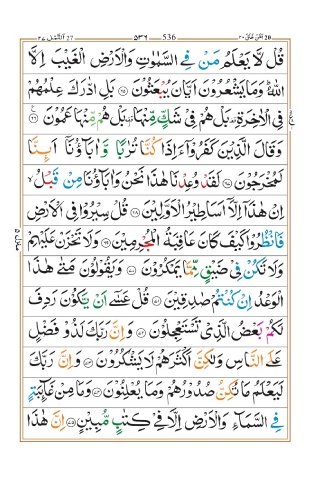 امن خلق ٢٠ 536 ٥٣٦ النمل ٢٧
قُلْ لَّا يَعْلَمُ مَنْ فِي السَّمٰوٰتِ وَالْاَرْضِ الْغَيْبَ اِلَّا
اللّٰهُ ؕ وَمَا يَشْعُرُوْنَ اَيَّانَ يُبْعَثُوْنَ ﴿٦٥﴾ بَلِ ادّٰرَكَ عِلْمُهُمْ
فِي الْاٰخِرَةِ ۫ بَلْ هُمْ فِيْ شَكٍّ مِّنْهَا ۫ بَلْ هُمْ مِّنْهَا عَمُوْنَ ﴿٦٦﴾
وَقَالَ الَّذِيْنَ كَفَرُوْۤا ءَاِذَا كُنَّا تُرٰبًا وَّاٰبَآؤُنَاۤ اَئِنَّا
لَمُخْرَجُوْنَ ﴿٦٧﴾ لَقَدْ وُعِدْنَا هٰذَا نَحْنُ وَاٰبَآؤُنَا مِنْ قَبْلُ ۙ
اِنْ هٰذَاۤ اِلَّاۤ اَسَاطِيْرُ الْاَوَّلِيْنَ ﴿٦٨﴾ قُلْ سِيْرُوْا فِي الْاَرْضِ
فَانْظُرُوْا كَيْفَ كَانَ عَاقِبَةُ الْمُجْرِمِيْنَ ﴿٦٩﴾ وَلَا تَحْزَنْ عَلَيْهِمْ
وَلَا تَكُنْ فِيْ ضَيْقٍ مِّمَّا يَمْكُرُوْنَ ﴿٧٠﴾ وَيَقُوْلُوْنَ مَتٰى هٰذَا
الْوَعْدُ اِنْ كُنْتُمْ صٰدِقِيْنَ ﴿٧١﴾ قُلْ عَسٰۤى اَنْ يَّكُوْنَ رَدِفَ
لَكُمْ بَعْضُ الَّذِيْ تَسْتَعْجِلُوْنَ ﴿٧٢﴾ وَاِنَّ رَبَّكَ لَذُوْ فَضْلٍ
عَلَى النَّاسِ وَلٰكِنَّ اَكْثَرَهُمْ لَا يَشْكُرُوْنَ ﴿٧٣﴾ وَاِنَّ رَبَّكَ
لَيَعْلَمُ مَا تُكِنُّ صُدُوْرُهُمْ وَمَا يُعْلِنُوْنَ ﴿٧٤﴾ وَمَا مِنْ غَآئِبَةٍ
فِي السَّمَآءِ وَالْاَرْضِ اِلَّا فِيْ كِتٰبٍ مُّبِيْنٍ ﴿٧٥﴾ اِنَّ هٰذَا